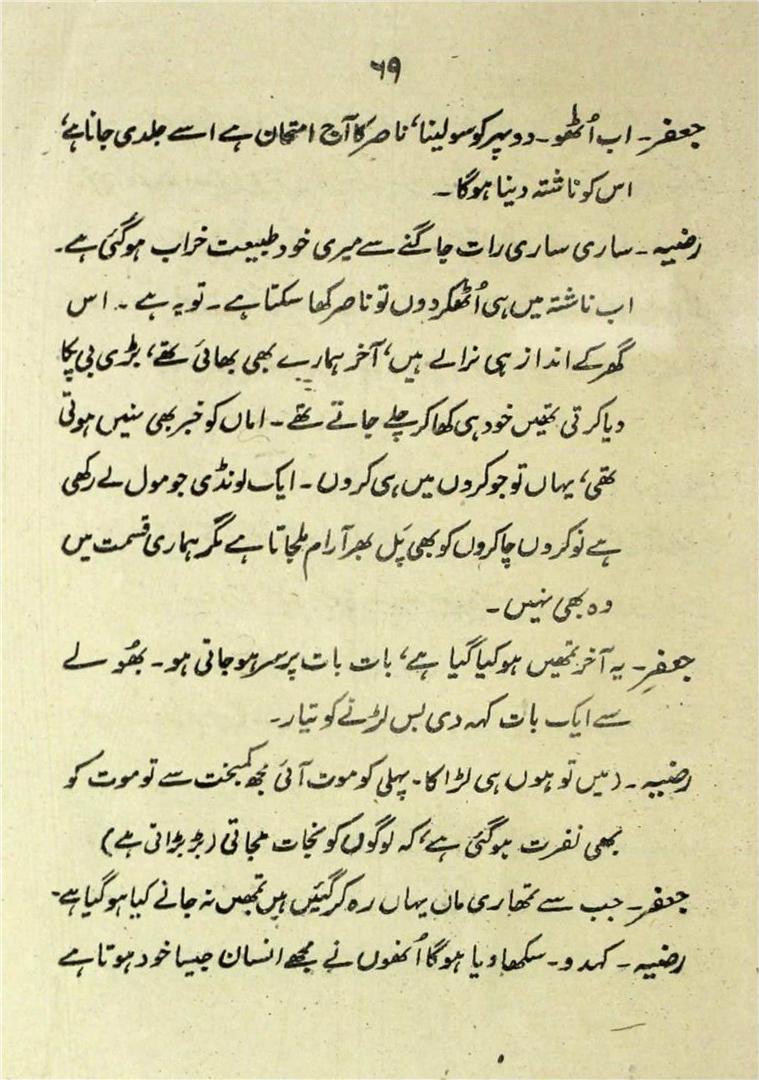 ۶۹
جعفر۔ اب اُٹھو۔ دوپہر کو سولینا، ناصر کا آج امتحان ہے اسے جلدی جانا ہے،
اس کو ناشتہ دینا ہوگا۔
رضیہ۔ ساری ساری رات جاگنے سے میری خود طبیعت خراب ہوگئی ہے۔
اب ناشتہ میں ہی اُٹھکر دوں تو ناصر کھا سکتا ہے۔ توبہ ہے۔ اس
گھر کے انداز ہی نرالے ہیں، آخر ہمارے بھی بھائی تھے، بڑی بی پکا
دیا کرتی تھیں خود ہی کھا کر چلے جاتے تھے۔ اماں کو خبر بھی نہیں ہوتی
تھی، یہاں تو جو کروں میں ہی کروں۔ ایک لونڈی جو مول لے رکھی
ہے نوکروں چاکروں کو بھی پَل بھر آرام ملجاتا ہے مگر ہماری قسمت میں
وہ بھی نہیں۔
جعفر۔ یہ آخر تمھیں ہو کیا گیا ہے، بات بات پر سر ہو جاتی ہو۔ بھُولے
سے ایک بات کہہ دی بس لڑنے کو تیار۔
رضیہ۔ (میں تو ہوں ہی لڑاکا۔ پہلی کو موت آئی مجھ کمبخت سے تو موت کو
بھی نفرت ہوگئی ہے، کہ لوگوں کو نجات ملجاتی (بڑبڑاتی ہے)
جعفر۔ جب سے تمھاری ماں یہاں رہ کر گئیں ہیں تمھیں نہ جانے کیا ہو گیا ہے۔
رضیہ۔ کہدو۔ سکھا دیا ہوگا اُنھوں نے مجھے انسان جیسا خود ہوتا ہے